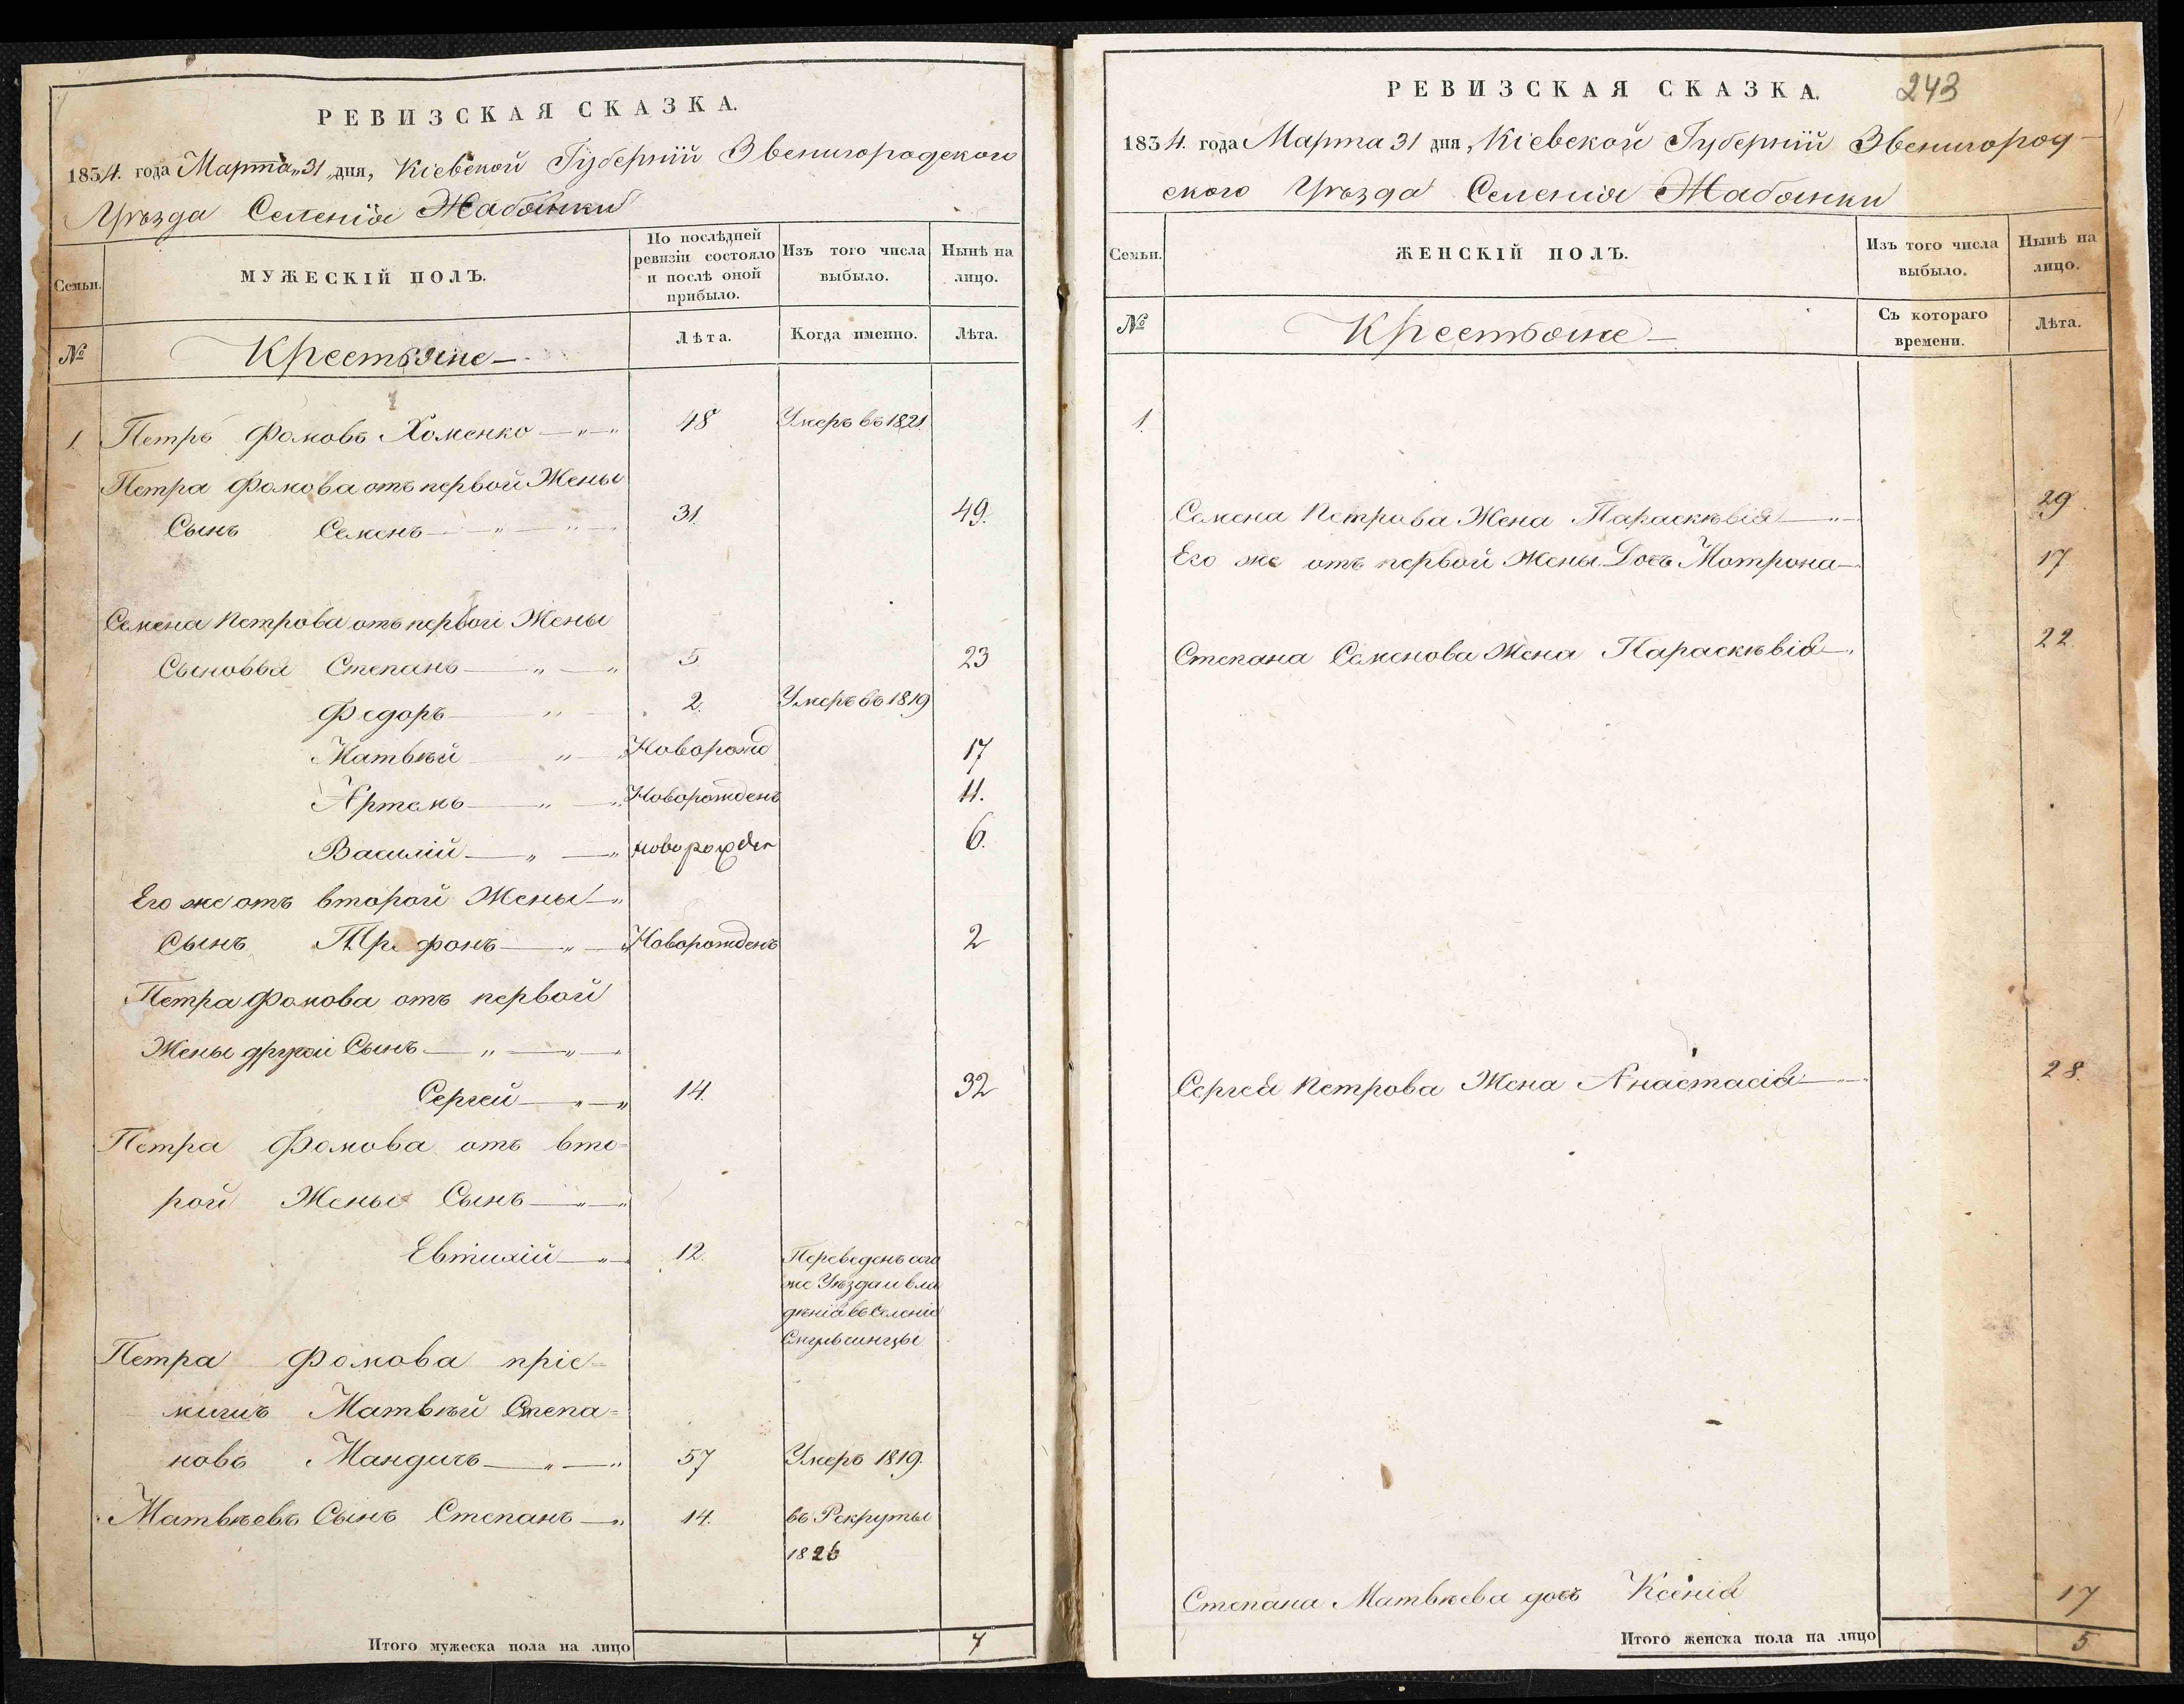 РЕВИЗСКАЯ СКАЗКА.
1834. года Марта „31 „дня, Кіевской Губерніи Звенигородскаго
Уѣзда Селенія Жабянки
Семьи.
МУЖЕСКІЙ ПОЛЪ.
По послѣдней ревизіи состояло и послѣ оной прибыло.
Изъ того числа выбыло.
Нынѣ на лицо.
№
Крестьяне
Лѣта.
Когда именно.
Лѣта.
1. Петръ Фомовъ Хоменко 48 Умеръ въ 1821.
Петра Фомова отъ первой Жены
Сынъ Семенъ 31. 49.
Семена Петрова отъ первой Жены
Сыновья Степанъ 5 23
Федоръ 2. Умеръ въ 1819
Матвѣй Новорожд 17
Артемъ Новорожденъ 11.
Василій новорожден 6.
Его же отъ второй Жены
Сынъ Трифонъ Новорожденъ 2
Петра Фомова отъ первой
Жены другой Сынъ
Сергей 14. 32
Петра Фомова отъ вто=
рой Жены Сынъ
Евтихій 12. Переведенъ сего
же Уѣзда и вла
дѣнія въ Селеніе
Петра Фомова пріе=
мишъ Матвѣй Степа=
новъ Мандичъ 57 Умеръ 1819.
Матвѣевъ Сынъ Степанъ 14. въ Рекруты
1826
Итого мужеска пола на лицо 7
243
РЕВИЗСКАЯ СКАЗКА.
1834. года Марта 31 дня, Кіевской Губерніи Звенигород-
скаго Уѣзда Селенія Жабянки
Семьи.
ЖЕНСКІЙ ПОЛЪ.
Изъ того числа выбыло.
Нынѣ на лицо.
№
Крестьяне
Съ котораго времени.
Лѣта.
1.
Семена Петрова Жена Параскѣвія 29.
Его же отъ первой Жены Дочь Мотрона 17
Степана Семенова Жена Параскѣвія 22.
Сергея Петрова Жена Анастасія 28.
Степана Матвѣева дочь Ксенія 17
Итого женска пола на лицо 5